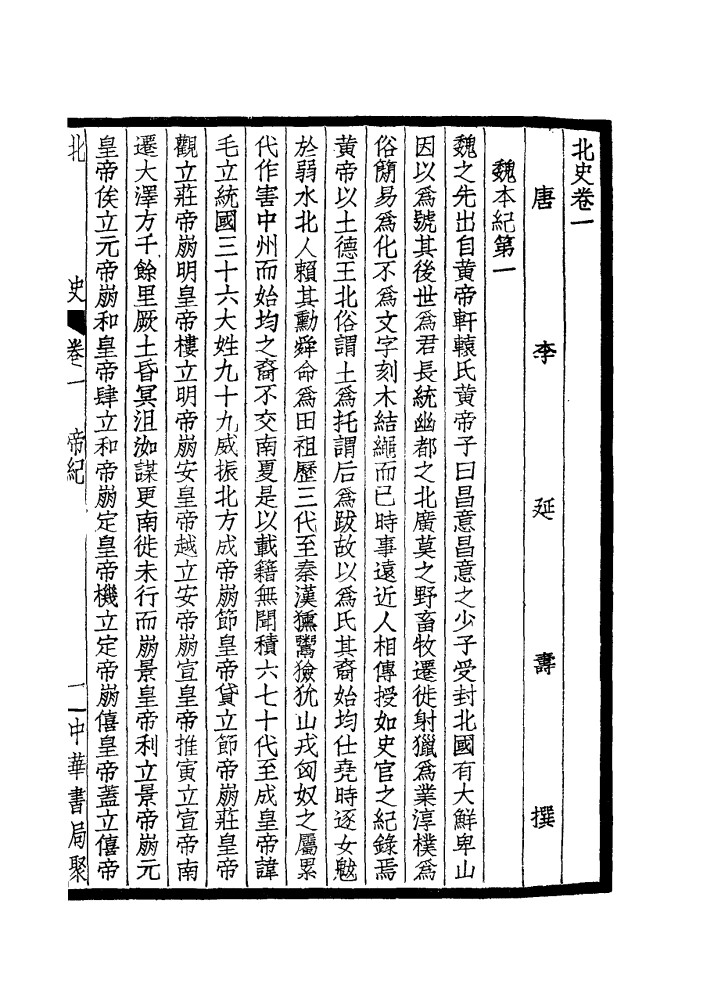 北史卷一
唐 李 延 壽 撰
魏本紀第一
魏之先出自黃帝軒轅氏黃帝子曰昌意昌意之少子受封北國有大鮮卑山
因以爲號其後世爲君長統幽都之北廣莫之野畜牧遷徙射獵爲業淳樸爲
俗簡易爲化不爲文字刻木結繩而已時事遠近人相傳授如史官之紀錄焉
黃帝以土德王北俗謂土爲托謂后爲跋故以爲氏其裔始均仕堯時逐女魃
於弱水北人賴其勳舜命爲田祖歷三代至秦漢獯鬻獫狁山戎匈奴之屬累
代作害中州而始均之裔不交南夏是以載籍無聞積六七十代至成皇帝諱
毛立統國三十六大姓九十九威振北方成帝崩節皇帝貸立節帝崩莊皇帝
觀立莊帝崩明皇帝樓立明帝崩安皇帝越立安帝崩宣皇帝推寅立宣帝南
遷大澤方千餘里厥土昏冥沮洳謀更南徙未行而崩景皇帝利立景帝崩元
皇帝俟立元帝崩和皇帝肆立和帝崩定皇帝機立定帝崩僖皇帝蓋立僖帝
北 史 卷一 帝紀 一 中華書局聚